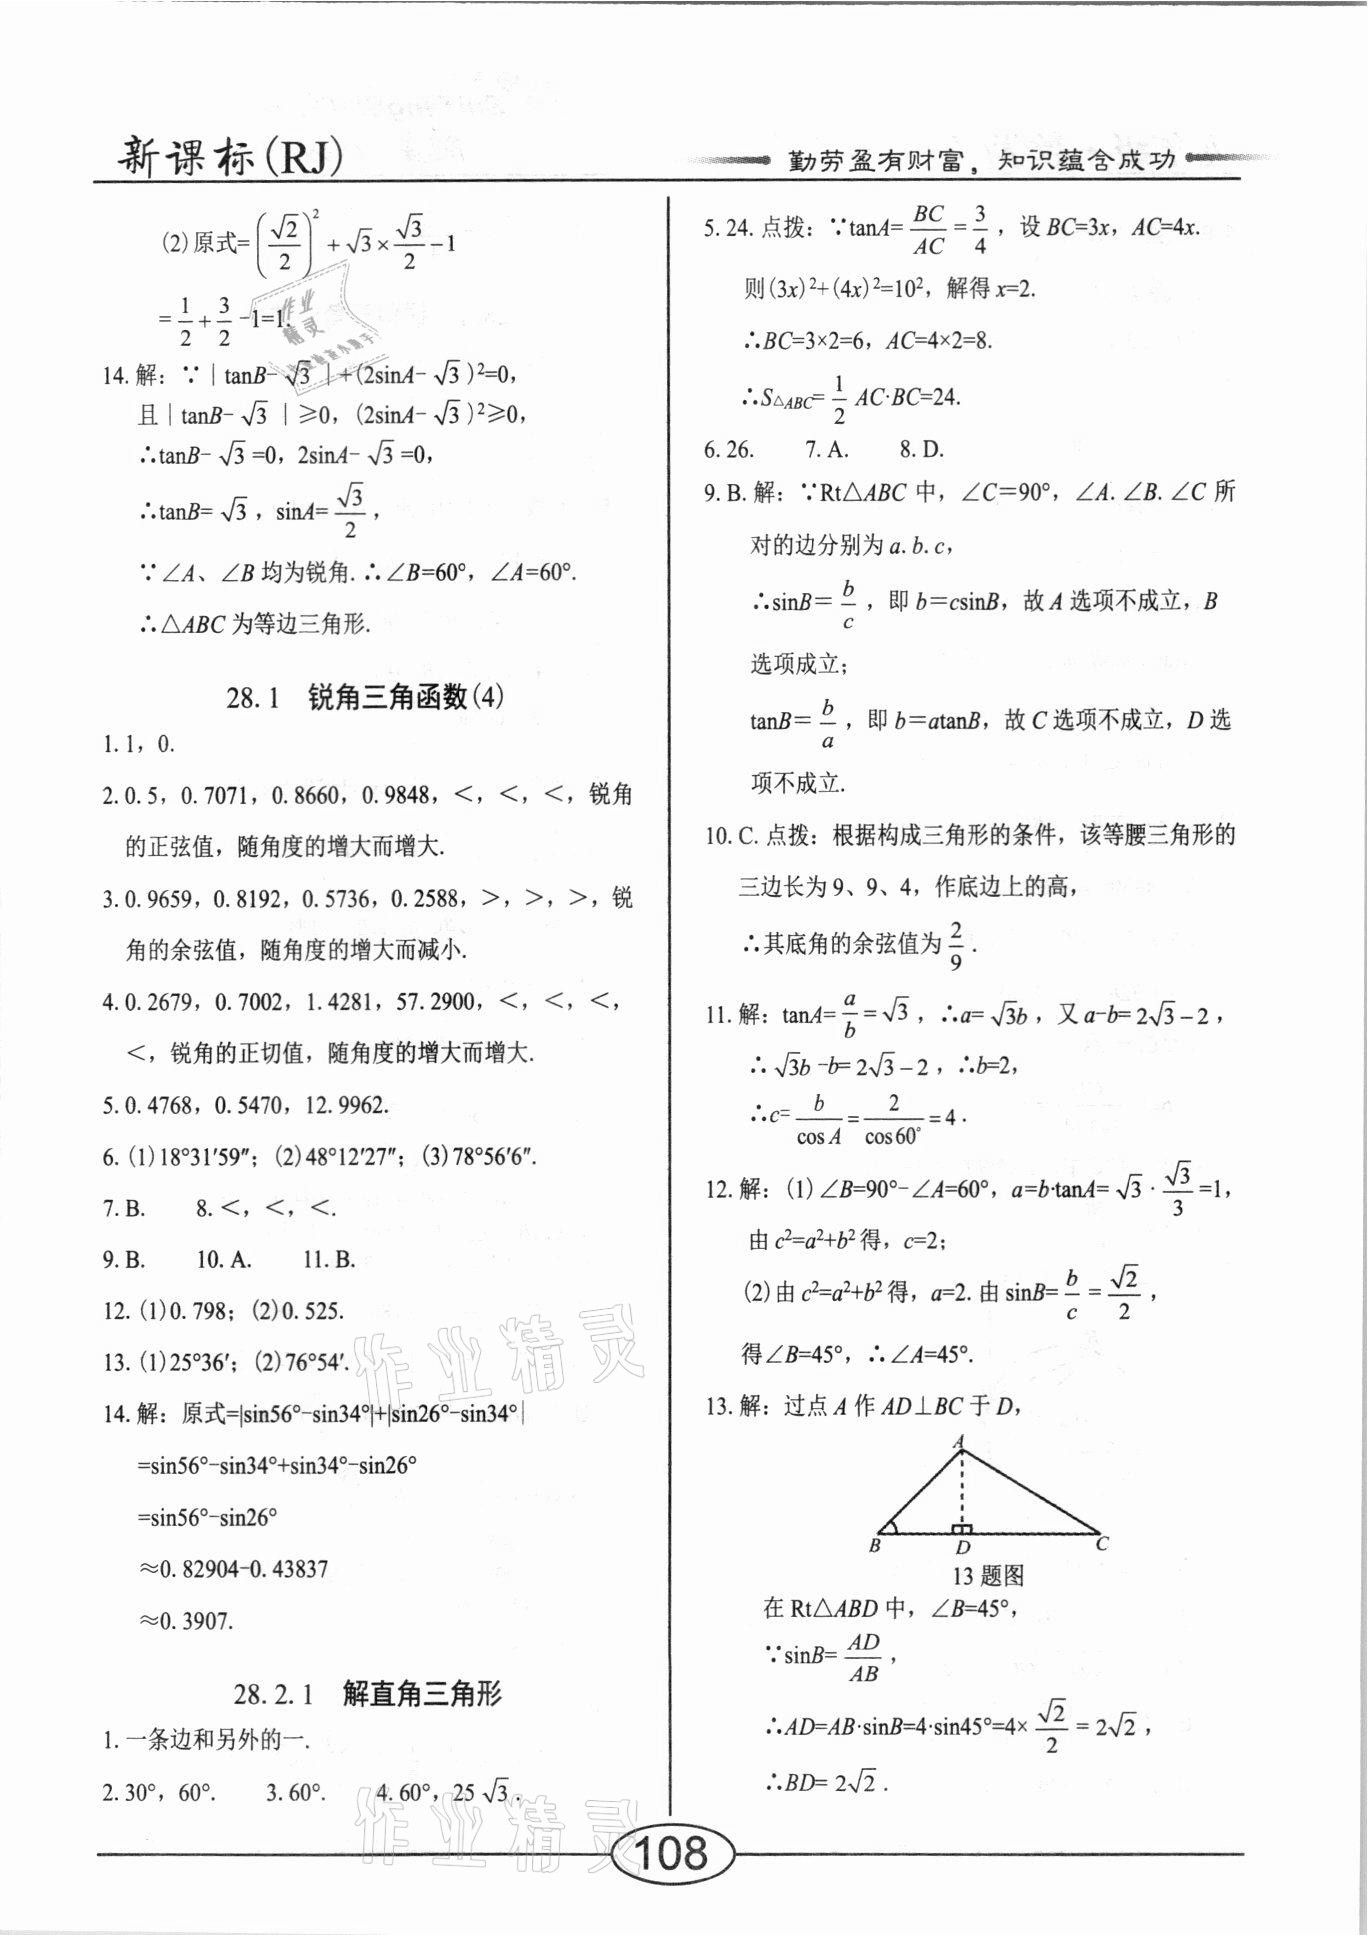 新课标(RJ)
勤劳盈有财富，知识蕴含成功
(2)原式=(√2/2)²+√3×√3/2-1
=1/2+3/2-1=1.
14.解：∵｜tanB-√3｜+(2sinA-√3)²=0,
且｜tanB-√3｜≥0，(2sinA-√3)²≥0,
∴tanB-√3=0，2sinA-√3=0,
∴tanB=√3，sinA=√3/2，
∵∠A、∠B均为锐角.∴∠B=60°，∠A=60°.
∴△ABC为等边三角形.
28.1　锐角三角函数(4)
1.1，0.
2.0.5，0.7071，0.8660，0.9848，＜，＜，＜，锐角
的正弦值，随角度的增大而增大.
3.0.9659，0.8192，0.5736，0.2588，＞，＞，＞，锐
角的余弦值，随角度的增大而减小.
4.0.2679，0.7002，1.4281，57.2900，＜，＜，＜，
＜，锐角的正切值，随角度的增大而增大.
5.0.4768，0.5470，12.9962.
6.(1)18°31′59″；(2)48°12′27″；(3)78°56′6″.
7.B.　8.＜，＜，＜.
9.B.　10.A.　11.B.
12.(1)0.798；(2)0.525.
13.(1)25°36′；(2)76°54′.
14.解：原式=|sin56°-sin34°|+|sin26°-sin34°|
=sin56°-sin34°+sin34°-sin26°
=sin56°-sin26°
≈0.82904-0.43837
≈0.3907.
28.2.1　解直角三角形
1.一条边和另外的一.
2.30°，60°.　3.60°.　4.60°，25√3.
5.24.点拨：∵tanA=BC/AC=3/4，设BC=3x，AC=4x.
则(3x)²+(4x)²=10²，解得x=2.
∴BC=3×2=6，AC=4×2=8.
∴S△ABC=1/2AC·BC=24.
6.26.　7.A.　8.D.
9.B.解：∵Rt△ABC中，∠C=90°，∠A.∠B.∠C所
对的边分别为a.b.c，
∴sinB=b/c，即b=csinB，故A选项不成立，B
选项成立；
tanB=b/a，即b=atanB，故C选项不成立，D选
项不成立.
10.C.点拨：根据构成三角形的条件，该等腰三角形的
三边长为9、9、4，作底边上的高，
∴其底角的余弦值为2/9.
11.解：tanA=a/b=√3，∴a=√3b，又a-b=2√3-2，
∴√3b-b=2√3-2，∴b=2,
∴c=b/cosA=2/cos60°=4.
12.解：(1)∠B=90°-∠A=60°，a=b·tanA=√3·√3/3=1，
由c²=a²+b²得，c=2；
(2)由c²=a²+b²得，a=2.由sinB=b/c=√2/2，
得∠B=45°，∴∠A=45°.
13.解：过点A作AD⊥BC于D，
A
B
D
C
13题图
在Rt△ABD中，∠B=45°，
∵sinB=AD/AB，
∴AD=AB·sinB=4·sin45°=4×√2/2=2√2，
∴BD=2√2.
108
作业精灵
作业精灵
作业
精灵